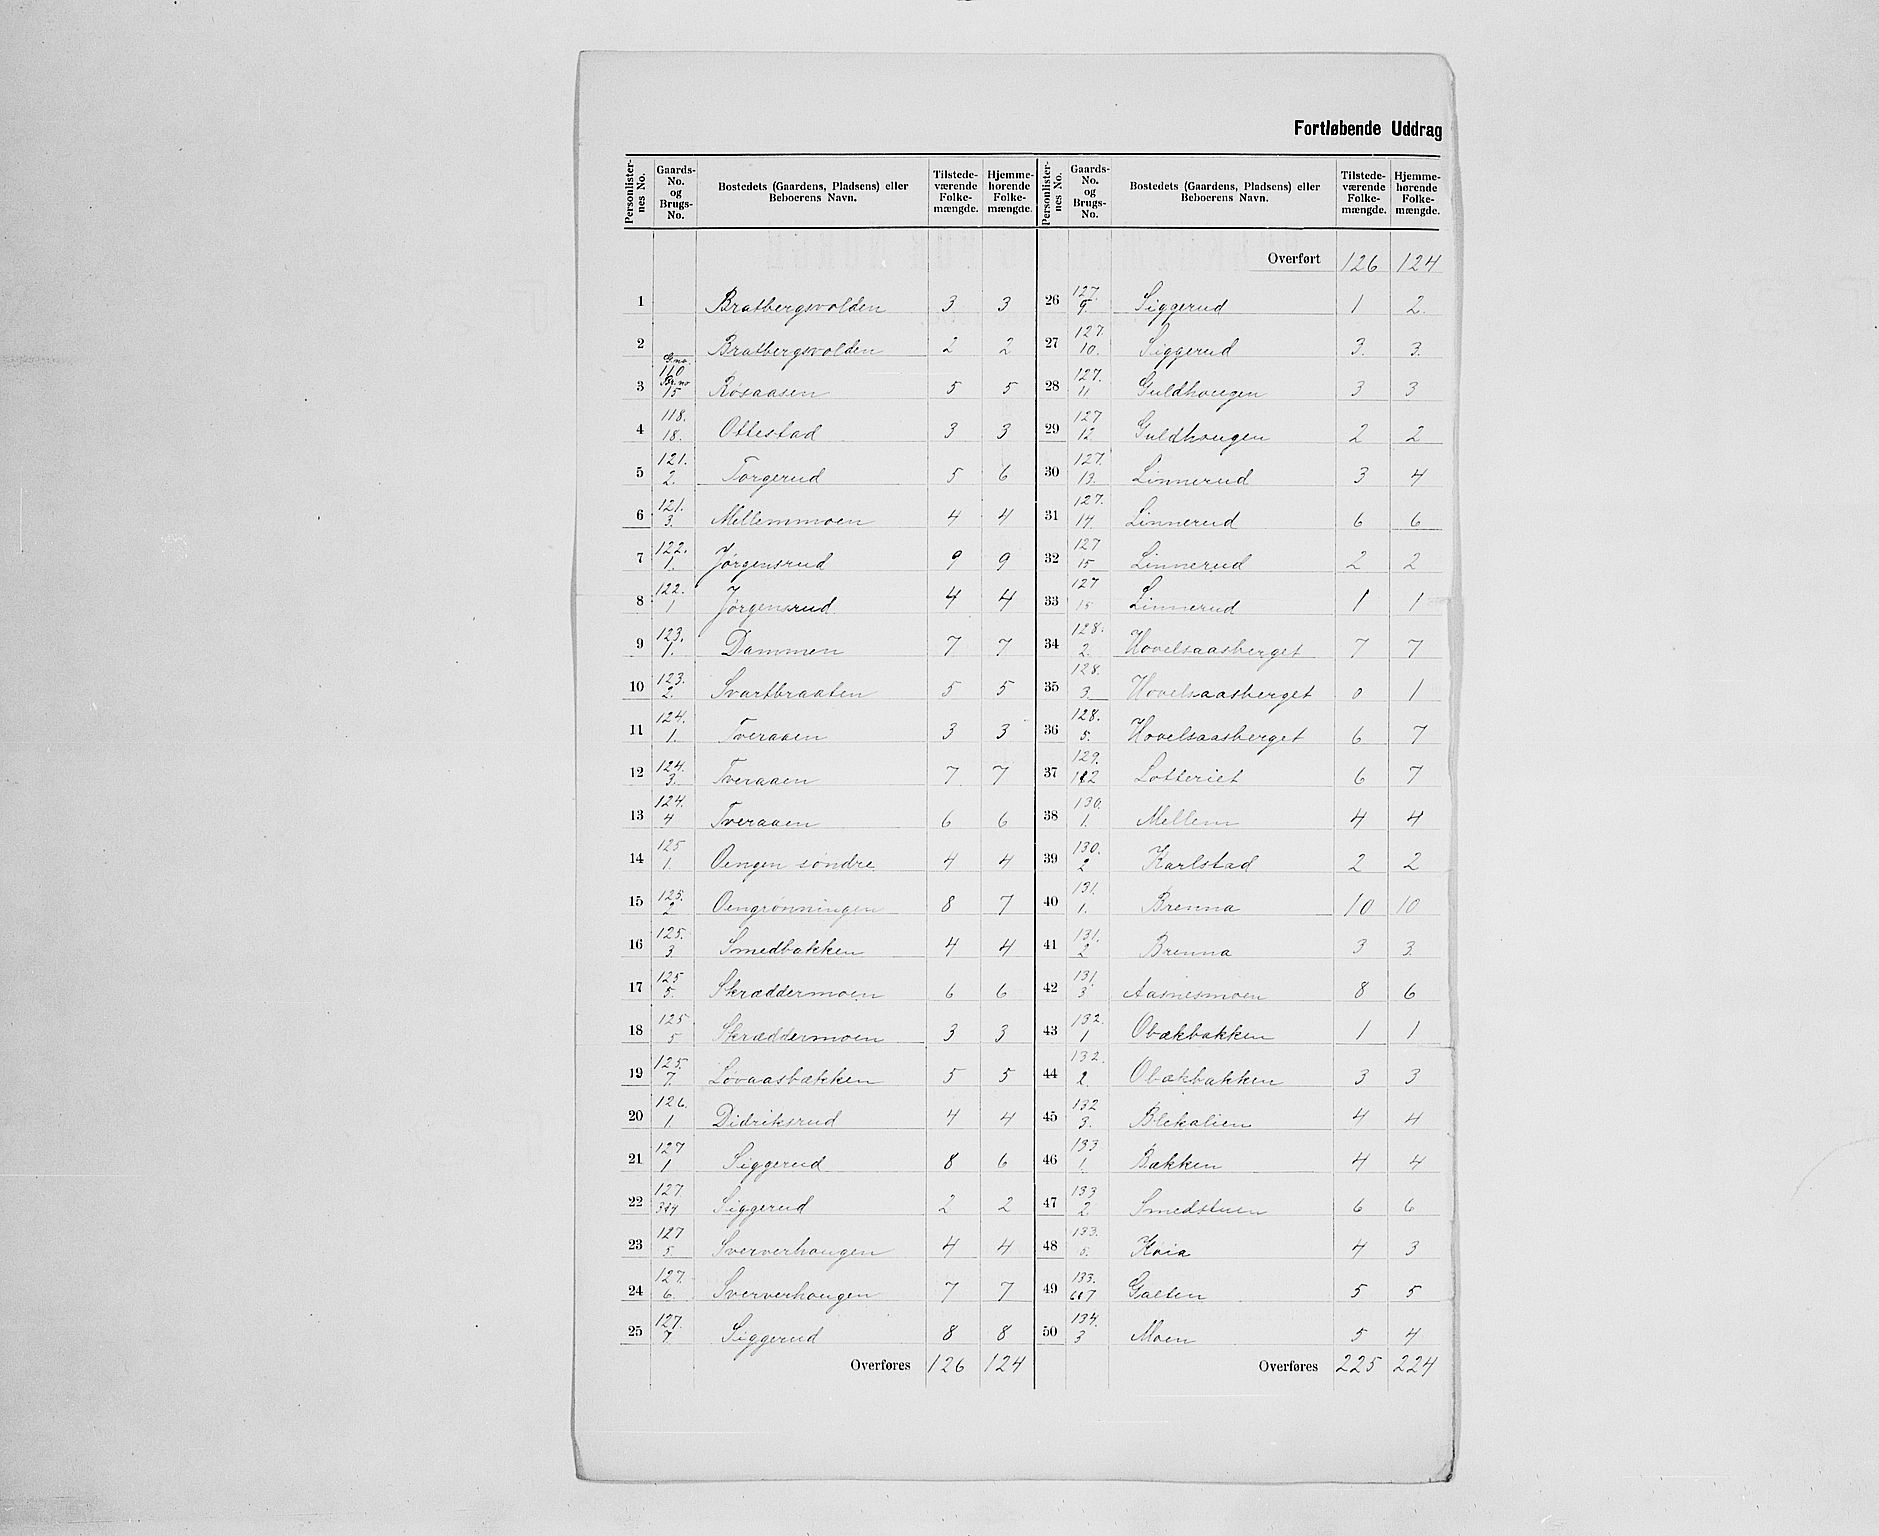 Fortløbende Uddrag
Personlister-nes No. | Gaards-No. og Brugs-No. | Bostedets (Gaardens, Pladsens) eller Beboerens Navn. | Tilstede-værende Folke-mængde. | Hjemme-hørende Folke-mængde.
1 | | Bratbergsvolden | 3 | 3
2 | | Bratbergsvolden | 2 | 2
3 | G.no. 110 Br.no 15 | Røsaasen | 5 | 5
4 | 118. 18. | Ottestad | 3 | 3
5 | 121. 2. | Torgerud | 5 | 6
6 | 121. 3. | Mellemmoen | 4 | 4
7 | 122. 1. | Jørgensrud | 9 | 9
8 | 122. 1 | Jørgensrud | 4 | 4
9 | 123. 1. | Dammen | 7 | 7
10 | 123. 2. | Svartbraaten | 5 | 5
11 | 124. 1. | Tveraaen | 3 | 3
12 | 124. 3. | Tveraaen | 7 | 7
13 | 124. 4 | Tveraaen | 6 | 6
14 | 125 1. | Oengen søndre | 4 | 4
15 | 125. 2 | Oengrønningen | 8 | 7
16 | 125. 3. | Smedbakken | 4 | 4
17 | 125 5. | Skræddermoen | 6 | 6
18 | 125 5 | Skræddermoen | 3 | 3
19 | 125. 7. | Løvaasbækken | 5 | 5
20 | 126. 1 | Didriksrud | 4 | 4
21 | 127 1 | Siggerud | 8 | 6
22 | 127. 3&4 | Siggerud | 2 | 2
23 | 127 5. | Sververhaugen | 4 | 4
24 | 127. 6. | Sververhaugen | 7 | 7
25 | 127. 7. | Siggerud | 8 | 8
Overføres | 126 | 124
Personlister-nes No. | Gaards-No. og Brugs-No. | Bostedets (Gaardens, Pladsens) eller Beboerens Navn. | Tilstede-værende Folke-mængde. | Hjemme-hørende Folke-mængde.
Overført | 126 | 124
26 | 127. 9. | Siggerud | 1 | 2.
27 | 127. 10. | Siggerud | 3. | 3.
28 | 127. 11 | Guldhaugen | 3 | 3
29 | 127 12 | Guldhaugen | 2 | 2
30 | 127. 13. | Linnerud | 3 | 4
31 | 127. 14. | Linnerud | 6 | 6
32 | 127 15 | Linnerud | 2 | 2
33 | 127 15 | Linnerud | 1 | 1
34 | 128. 2. | Hovelsaasberget | 7 | 7
35 | 128. 3. | Hovelsaasberget | 0 | 1
36 | 128. 5. | Hovelsaasberget | 6 | 7
37 | 129. 1&2 | Lotteriet | 6 | 7
38 | 130. 1. | Mellem | 4 | 4
39 | 130. 2 | Karlstad | 2 | 2
40 | 131. 1. | Brenna | 10 | 10
41 | 131. 2 | Brenna | 3 | 3.
42 | 131. 3 | Aasnesmoen | 8 | 6
43 | 132. 1 | Obækbakken | 1 | 1
44 | 132. 2. | Obækbakken | 3 | 3
45 | 132 3. | Blekalien | 4 | 4
46 | 133 1. | Bækken | 4 | 4
47 | 133 2 | Smedstuen | 6 | 6
48 | 133. 5. | Koia | 4 | 3
49 | 133. 6&7 | Galten | 5 | 5
50 | 134. 3 | Moen | 5 | 4
Overføres | 225 | 224